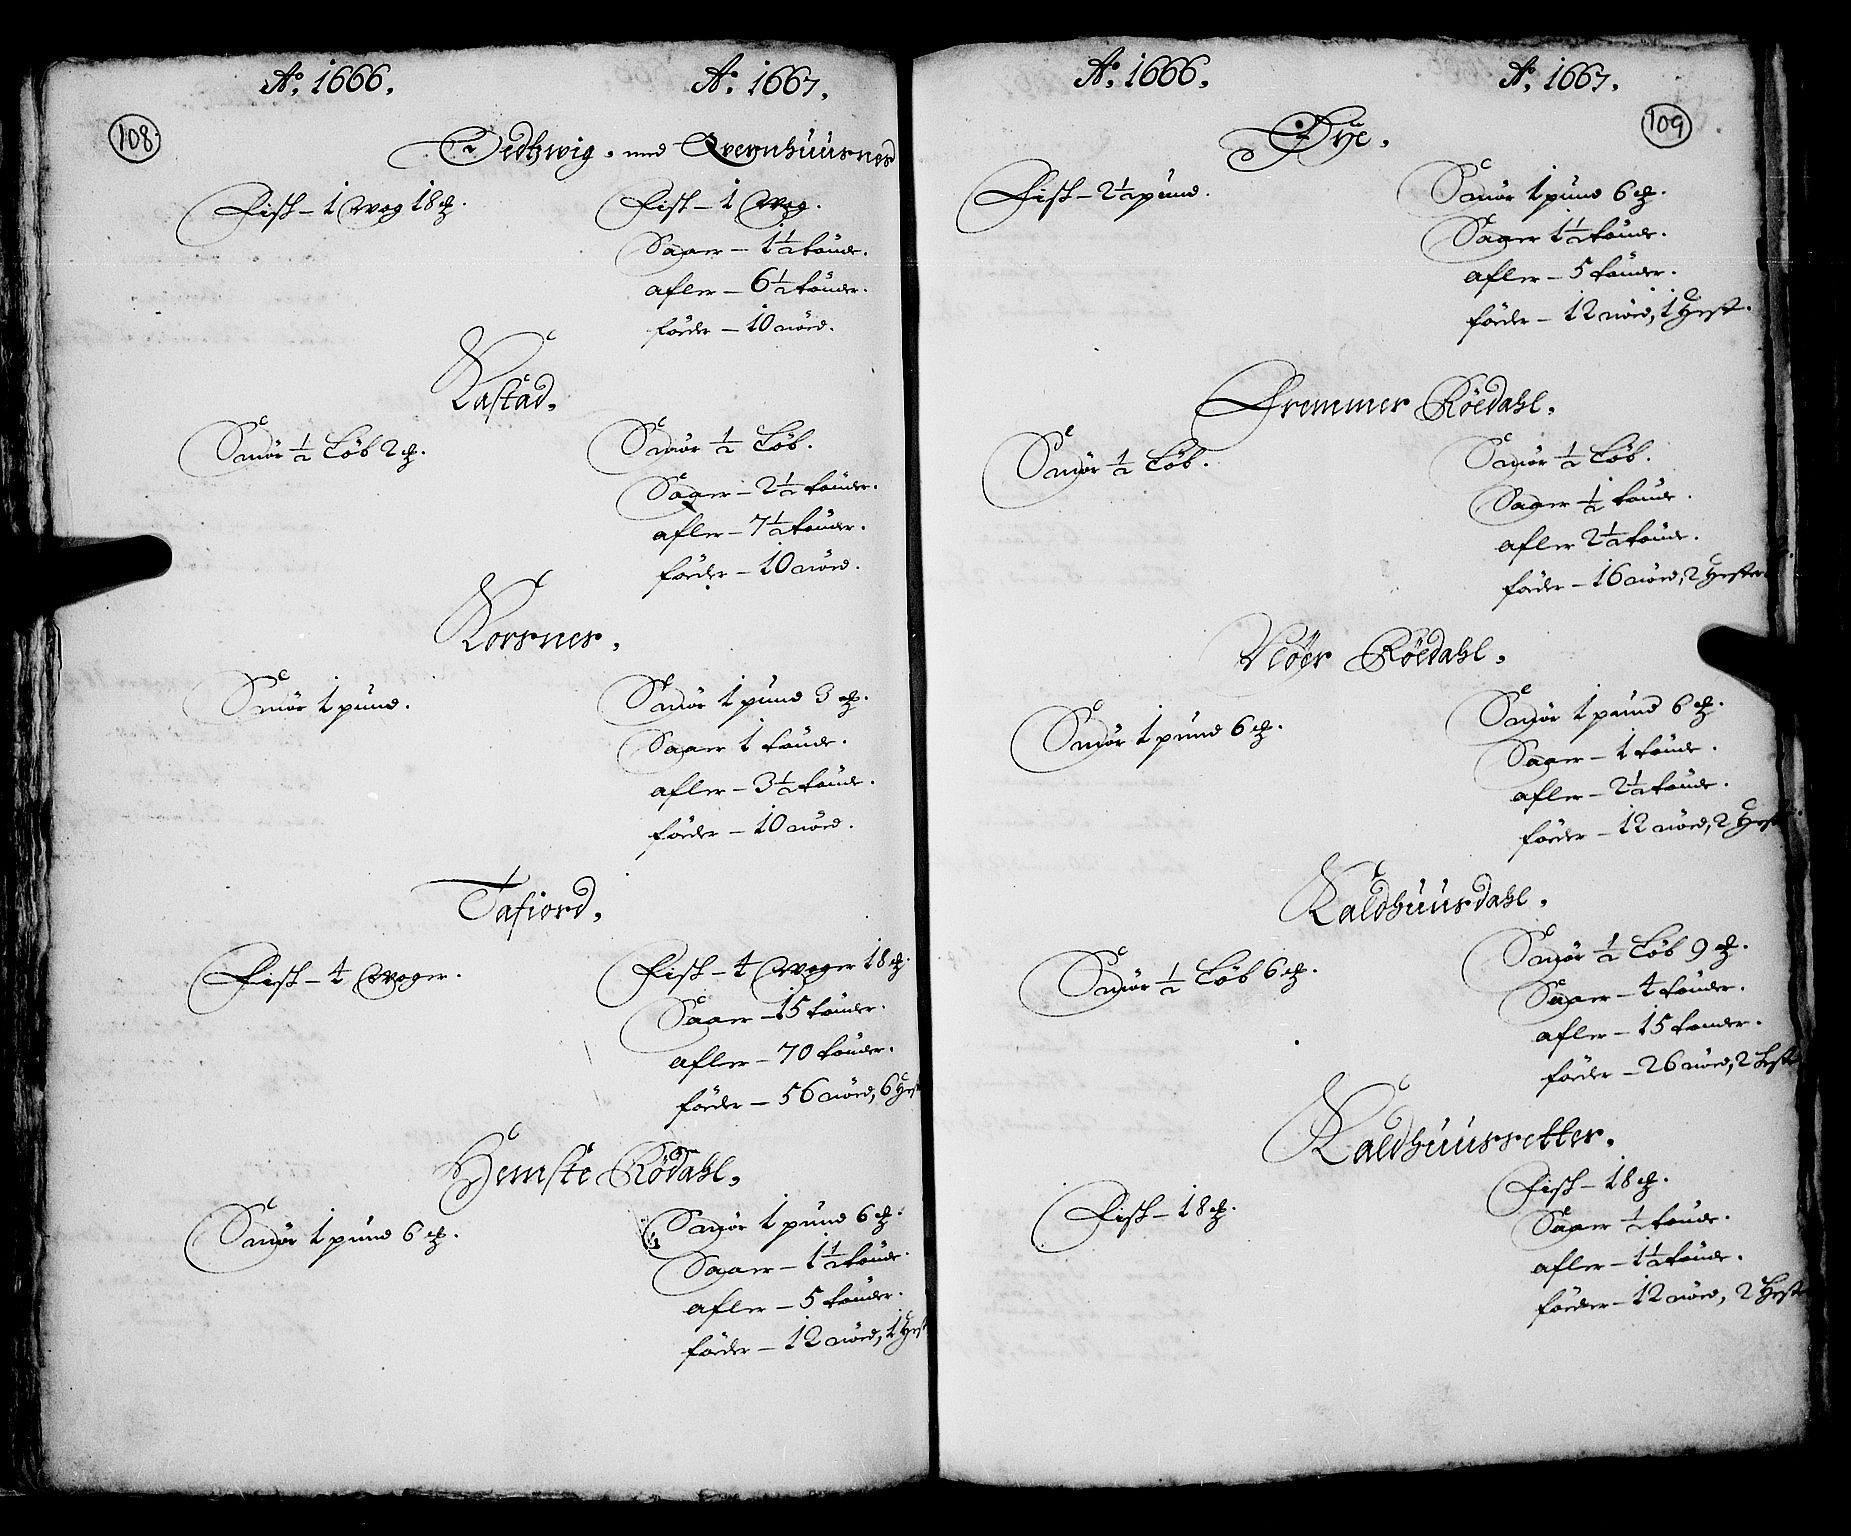 108
Ao. 1666. Ao. 1667.
Oedhwig. med Qvernhuusnes
Fisk – 1 wog 18 ℔. Fisk – 1 wog.
Saaer – 1½ tønde.
afler – 6½ tønder.
føeder – 10 nøed.
Kastad.
Smør ½ Løb 2 ℔. Smør ½ Løb.
Saaer – 2½ tønder.
afler – 7½ tønder.
føeder – 10 nøed.
Korsnes.
Smør 1 pund. Smør 1 pund 3 ℔.
Saaer 1 tønde.
afler – 3½ tønde.
føeder – 10 nøed.
Tafiord.
Fisk – 4 woger. Fisk – 4 woger 18 ℔.
Saaer – 15 tønder.
afler – 70 tønder.
føeder – 56 nøed, 6 Hest
Hemste Rödahl.
Smør 1 pund 6 ℔. Smør 1 pund 6 ℔.
Saaer – 1½ tønde.
afler – 5 tønder.
føeder – 12 nøed, 1 Hest
109
Ao. 1666. Ao. 1667.
Øye.
Fisk – 2½ pund. Smør 1 pund 6 ℔.
Saaer 1½ tønde.
afler – 5 tønder.
føeder – 12 nøed, 1 Hest.
Fremmer Röedahl.
Smør ½ Løb. Smør ½ Løb.
Saaer – ½ tønde.
afler 2½ tønde.
føeder – 16 nøed, 2 Hester.
Röedahl.
Smør 1 pund 6 ℔. Smør 1 pund 6 ℔.
Saaer – 1 tønde.
afler – 2½ tønde.
føeder – 12 nøed, 2 Hest
Kaldhuusdahl.
Smør ½ Løb 6 ℔. Smør ½ Løb 9 ℔.
Saaer – 4 tønder.
afler – 15 tønder.
føeder – 26 nøed, 2 Hest
Kaldhuussetter.
Fisk – 18 ℔. Fisk – 18 ℔.
Saaer ½ tønde.
afler – 1½ tønde.
føeder – 12 nøed, 2 Hest